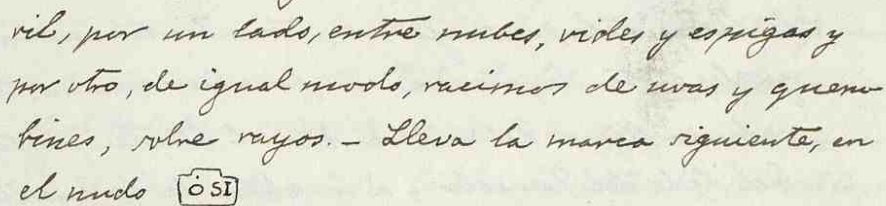 ril, por un lado, entre nubes, vides y espigas y
por otro, de igual modo, racimos de uvas y queru-
bines, sobre rayos. - Lleva la marca siguiente, en
el nudo ÒSI